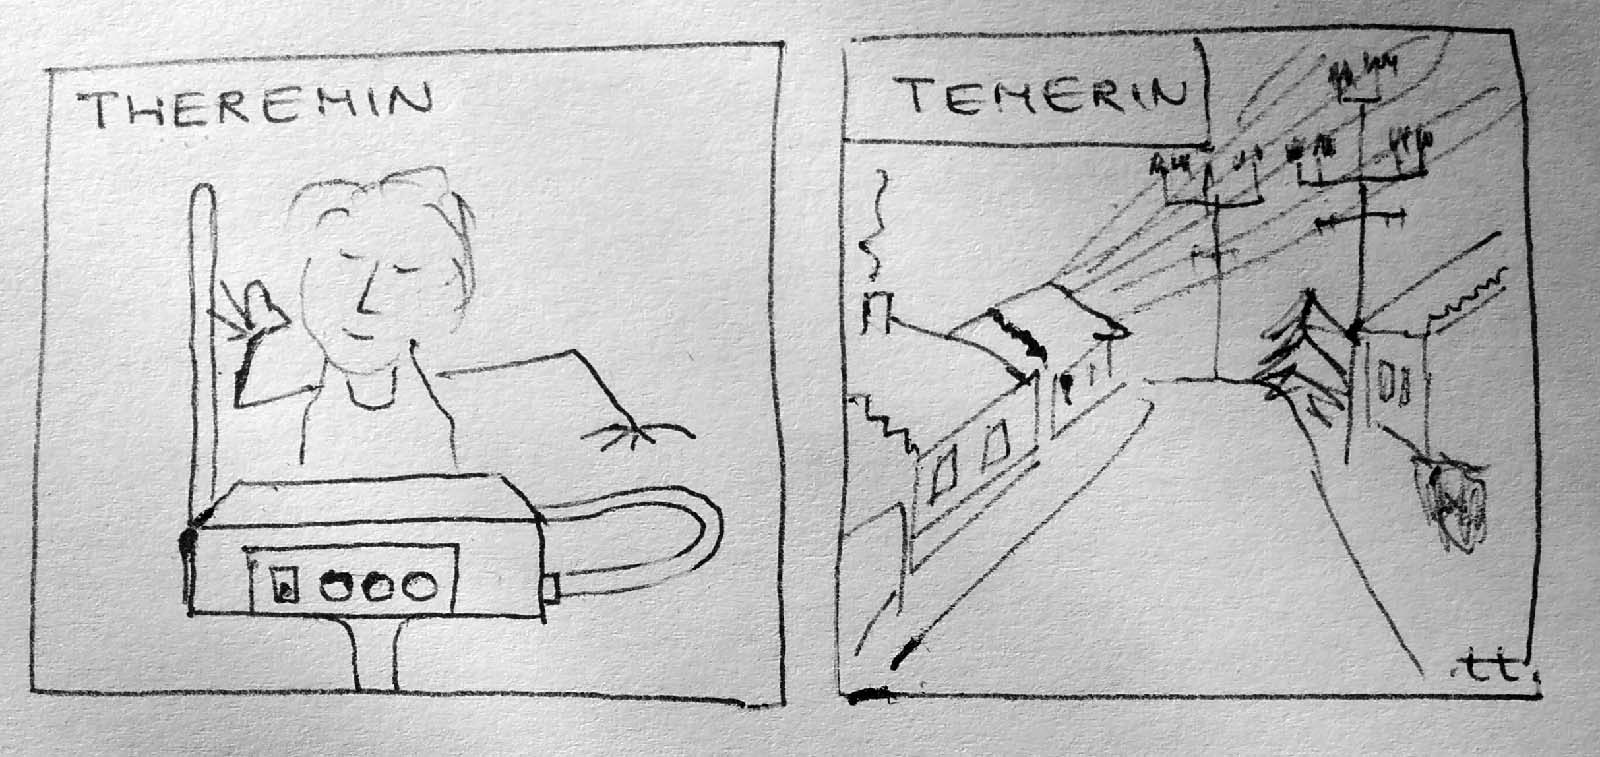 THEREMIN
TEMERIN
t.t.